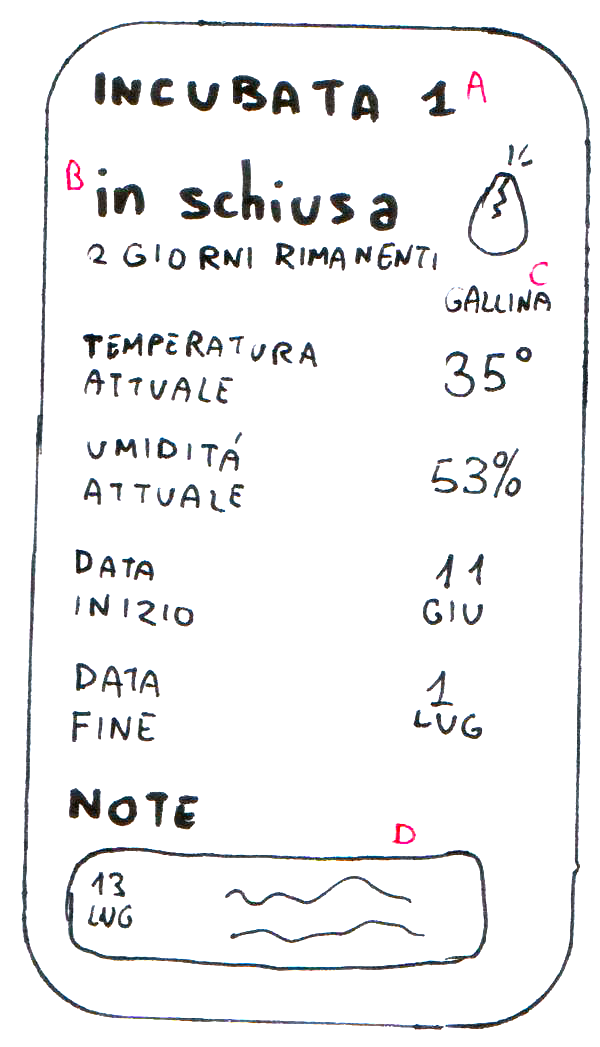 INCUBATA 1 A
B in schiusa
2 GIORNI RIMANENTI
C
GALLINA
TEMPERATURA
ATTUALE
35°
UMIDITÁ
ATTUALE
53%
DATA
INIZIO
11
GIU
DATA
FINE
1
LUG
NOTE
D
13
LUG